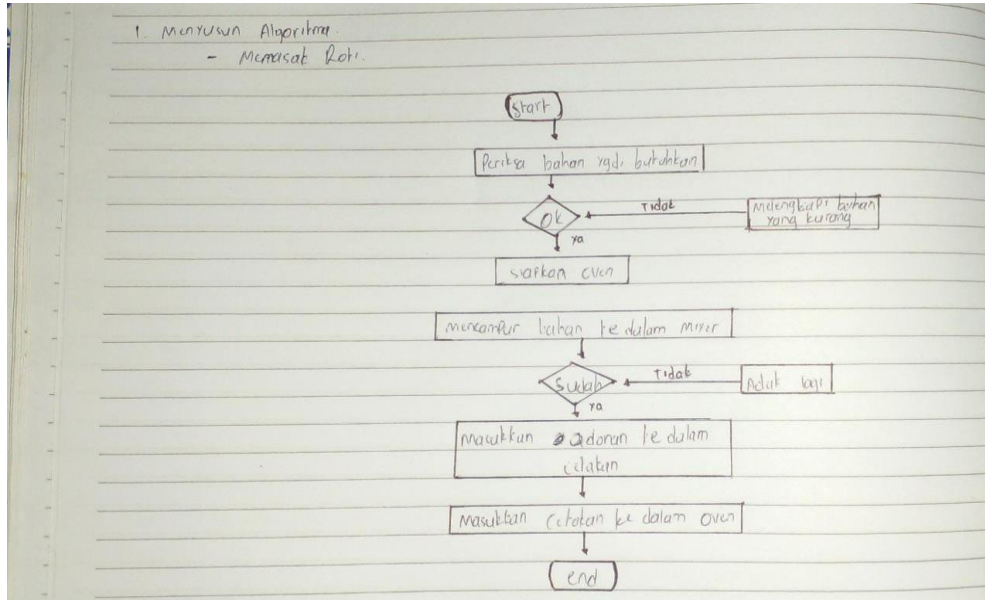 1. Menyusun Algoritma.
- Memasak Roti.
Start
Periksa bahan ygdi butuhkan
Ok
Tidak
Melengkapi bahan
yang kurang
ya
siapkan oven
mencampur bahan ke dalam mixer
Sudah
Tidak
Aduk lagi
Ya
Masukkan adonan ke dalam
cetakan
Masukkan Cetakan ke dalam oven
end